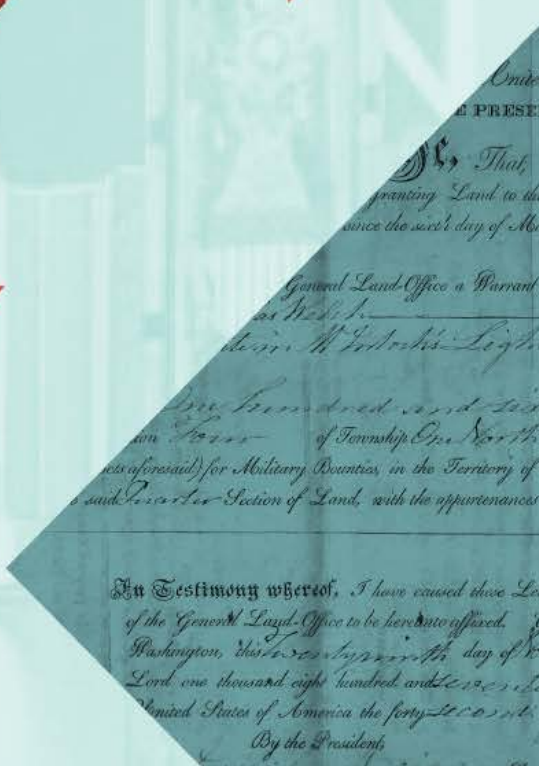 Unite
E PRESE
That,
granting Land to th
since the sixth day of Ma
General Land-Office a Warrant
as Welch
M'Intosh's Ligh
One hundred and six
ion Four of Township One North
acts aforesaid) for Military Bounties, in the Territory of
said Quarter Section of Land, with the appurtenances
In Testimony whereof, I have caused these Le
of the General Land-Office to be hereunto affixed.
Washington, this twentyninth day of
Lord one thousand eight hundred and sevent
United States of America the forty second.
By the President,